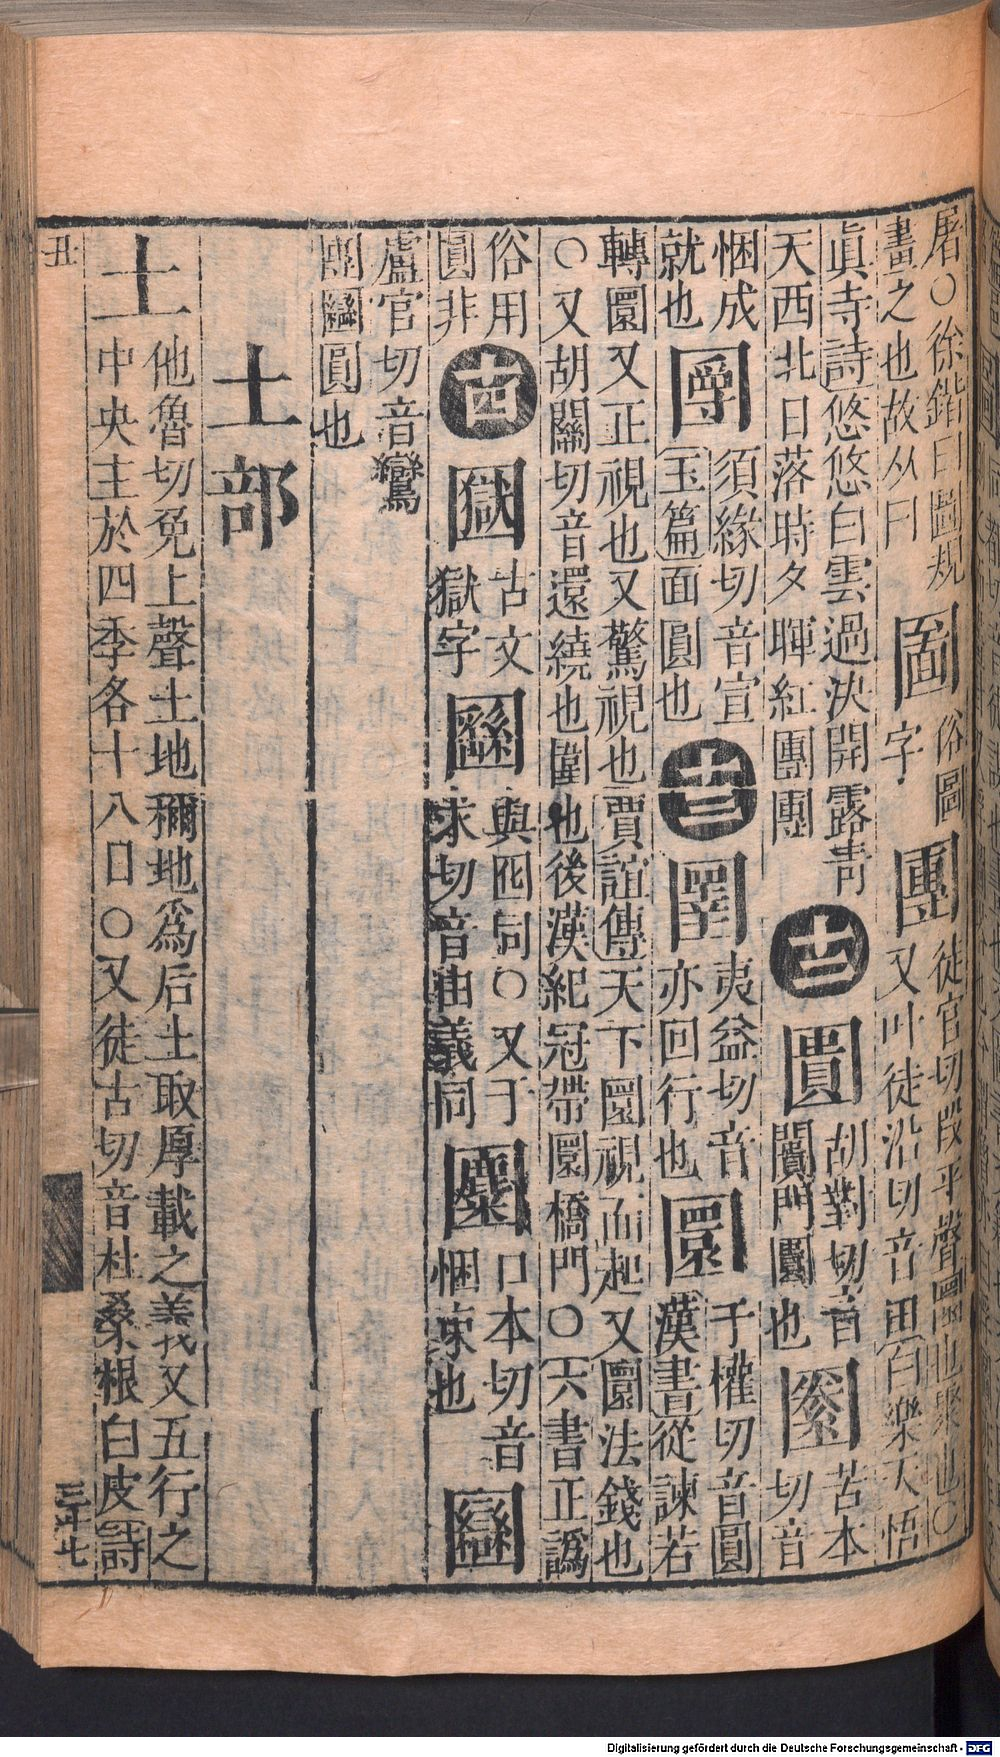 屠○徐鍇曰圖規
畫之也故从囗
啚
俗圖
字
團
徒官切段平聲圓也聚也○
又叶徒沿切音田白樂天悟
眞寺詩悠悠白雲過決開露靑
天西北日落時夕暉紅團團
十二
圚
胡對切音
闠門闤也
壼
苦本
切音
悃成
就也
圝
須緣切音宣
玉篇面圓也
十三
圛
夷益切音
亦回行也
圜
于權切音圓
漢書從諫若
轉圜又正視也又驚視也賈誼傳天下圜視而起又圜法錢也
○又胡關切音還繞也圍也後漢紀冠帶圜橋門○六書正譌
俗用
圓非
十四
古文
獄字
圞
與囮同○又于
求切音由義同
口本切音
悃束也
圞
盧官切音鸞
團圞圓也
土部
土
他魯切兔上聲土地穪地爲后土取厚載之義又五行之
中央主於四季各十八日○又徒古切音杜桑根白皮詩
丑
三十七
Digitalisierung gefördert durch die Deutsche Forschungsgemeinschaft - DFG